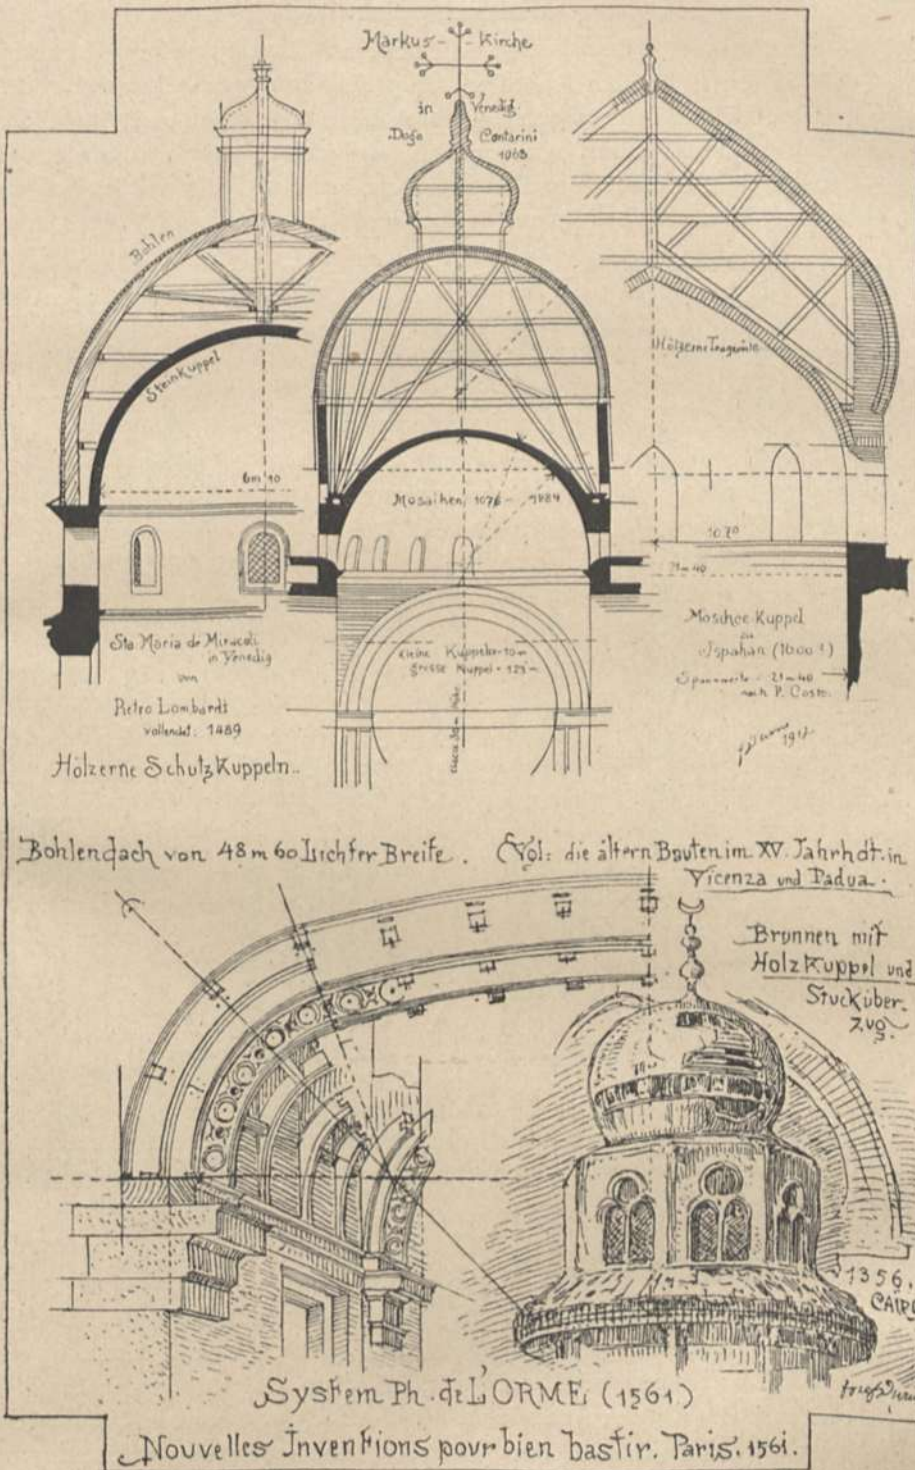 Markus- Kirche
in Venedig.
Doge Contarini
1063
Bohlen
Steinkuppel
6m 10
Mosaiken 1076-
Hölzerne
10.70
21m 40
Sta: Maria de Miracoli
in Venedig
von
Pietro Lombardi
vollendet: 1489
Hölzerne Schutzkuppeln.
kleine Kuppeln=10m
grosse Kuppel=
Moschee-Kuppel
zu
Ispahan (1600 ?)
Spannweite = 21m40
nach P. Coste.
1912
Bohlendach von 48m60 Lichter Breite. (Vgl: die ältern Bauten im XV. Jahrhdt. in
Vicenza und Padua.
Brunnen mit
Holzkuppel und
Stucküber-
zug.
1356,
CAIRO
System Ph. de L'ORME (1561)
Nouvelles Inventions pour bien bastir. Paris. 1561.